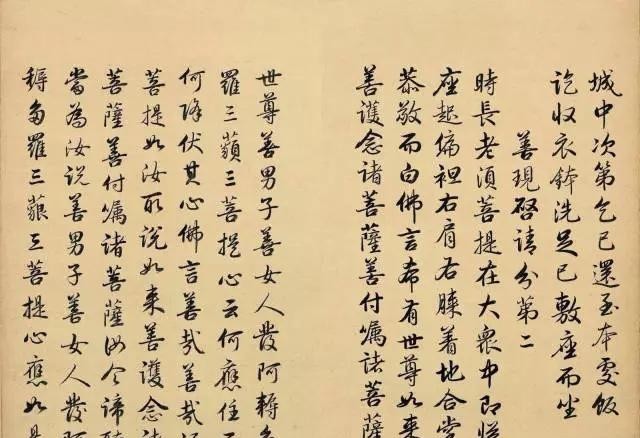 城中次第乞已還至本處飯
訖收衣鉢洗足已敷座而坐
善現啓請分第二
時長老須菩提在大衆中即從
座起偏袒右肩右膝着地合掌
恭敬而白佛言希有世尊如來
善護念諸菩薩善付囑諸菩薩
世尊善男子善女人發阿耨多
羅三藐三菩提心云何應住
何降伏其心佛言善哉善哉
菩提如汝所說如来善護念諸
菩薩善付囑諸菩薩汝今諦聽
當為汝說善男子善女人發阿
耨多羅三藐三菩提心應如是